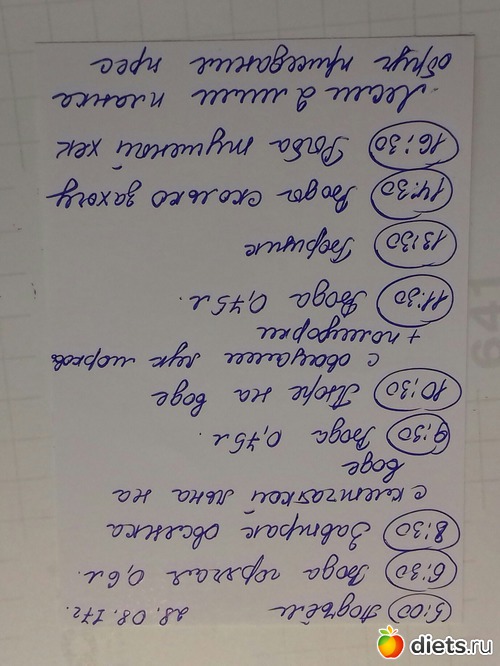 5:00 Подъём 28.08.17г.
6:30 Вода горячая 0,6л.
8:30 Завтрак овсянка
с клетчаткой льна на
воде
9:30 Вода 0,75л.
10:30 Пюре на воде
с овощами лук морковь
+ помидорки
11:30 Вода 0,75л.
13:30 Творщик
14:30 Вода сколько захочу
16:30 Рыба тушеной хек
2 мил планка
обруч приседание прес
641
diets.ru